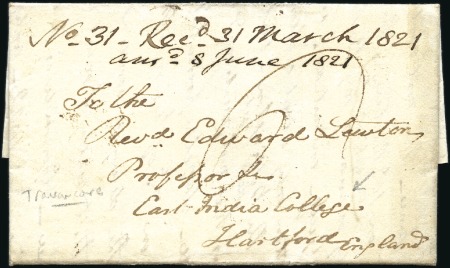 No. 31 - Recd. 31 March 1821
ansd. 8 June 1821
To the
Revd. Edward Lewton
Professor &c
East-India College
Hartford England
Travancore